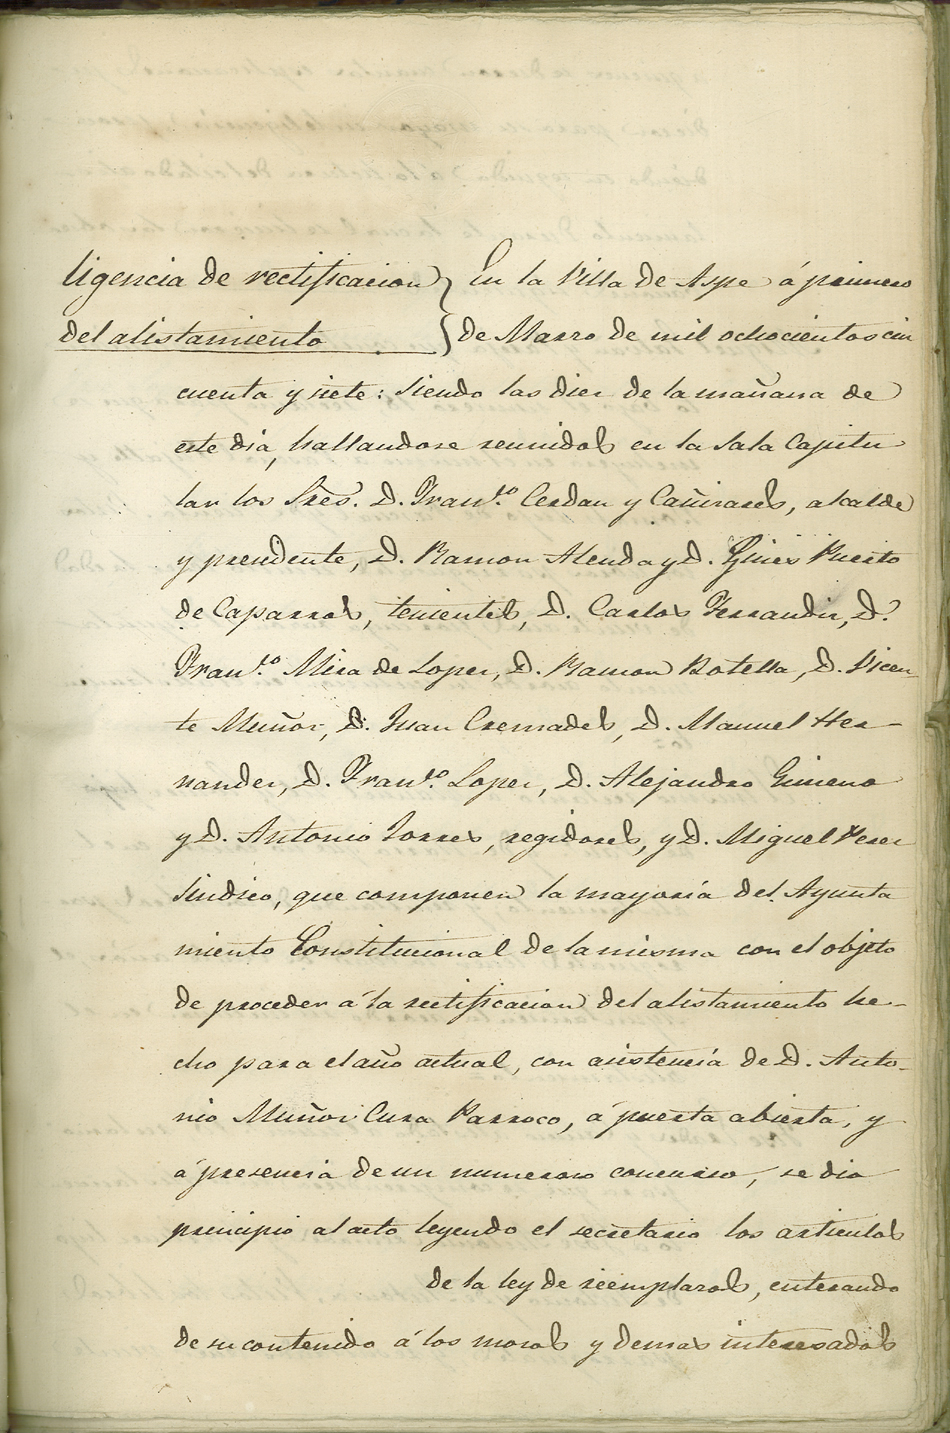 ligencia de rectificacion } En la Villa de Aspe á primero
del alistamiento } de Marzo de mil ochocientos cin
cuenta y siete: Siendo las diez de la mañana de
este dia, hallandose reunidos en la Sala Capitu
lar los Sres. D. Fran.co Cerdan y Cañizares, alcalde
y presidente, D. Ramon Alenda y D. Gines Puerto
de Caparros, tenientes, D. Carlos Ferrandiz, D.
Fran.co Mira de Lopez, D. Ramon Botella, D. Vicen
te Muñoz, D. Juan Cremades, D. Manuel Her-
nandez, D. Fran.co Lopez, D. Alejandro Gimeno
y D. Antonio Torres, regidores, y D. Miguel Perez
Sindico, que componen la mayoria del Ayunta
miento Constitucional de la misma con el objeto
de proceder á la rectificacion del alistamiento he-
cho para el año actual, con asistencia de D. Anto-
nio Muñoz Cura Parroco, á puerta abierta, y
á presencia de un numeroso concurso, se dio
principio al acto leyendo el secretario los articulos
de la ley de reemplazos, enterando
de su contenido á los mozos y demas interesados